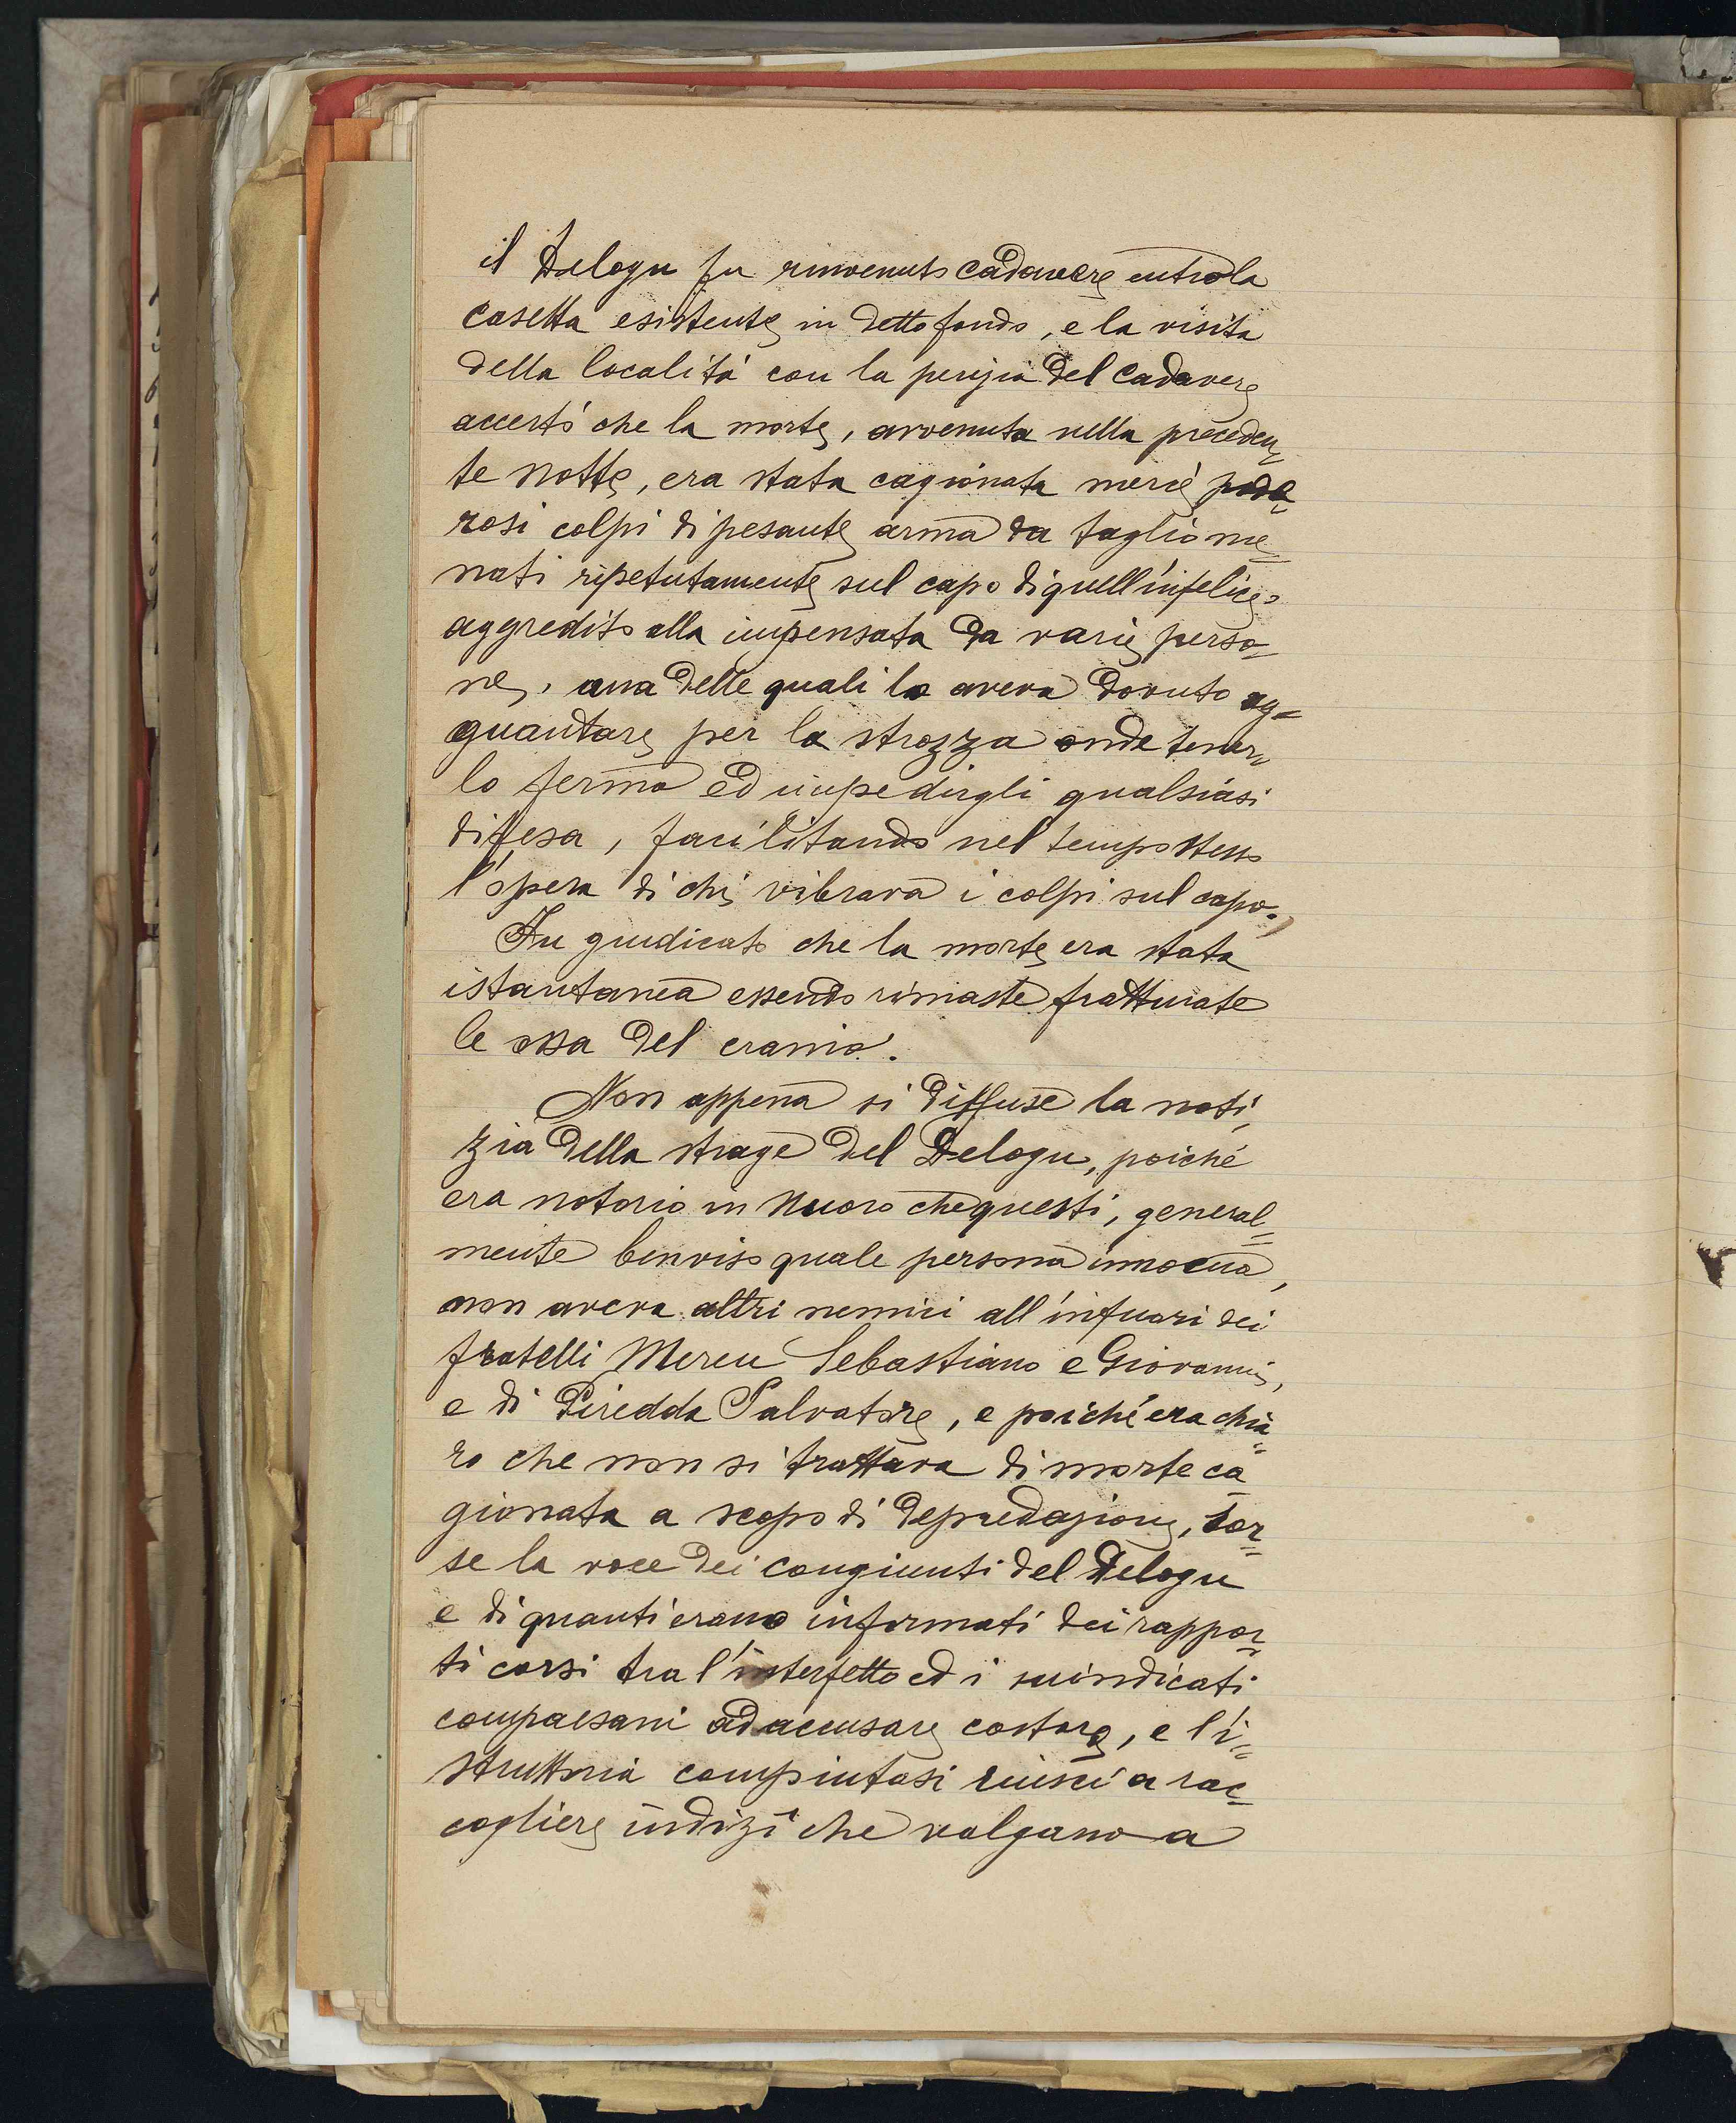 il Delogu fu rinvenuto cadavere entro la
casetta esistente in detto fondo, e la visita
della località con la perizia del cadavere
accertò che la morte, avvenuta nella preceden
te notte, era stata cagionata mercè pode
rosi colpi di pesante arma da taglio me
nati ripetutamente sul capo di quell'infelice
aggredito alla impensata da varie perso
ne, una delle quali lo aveva dovuto ag=
guantare per la strozza onde tener
lo fermo ed impedirgli qualsiasi
difesa, facilitando nel tempo stesso
l'opera di chi vibrava i colpi sul capo.
Fu giudicato che la morte era stata
istantanea essendo rimaste fratturate
le ossa del cranio.
Non appena si diffuse la noti
zia della strage del Delogu, poiché
era notorio in Nuoro che questi, general=
mente benviso quale persona innocua,
non aveva altri nemici all'infuori dei
fratelli Mereu Sebastiano e Giovanni,
e di Piredda Salvatore, e poiché era chia
ro che non si trattava di morte ca
gionata a scopo di depredazione, sor=
se la voce dei congiunti del Delogu
e di quanti erano informati dei rappor
ti corsi tra l'interfetto ed i suindicati
compaesani ad accusare costoro, e l'i=
struttoria compiutasi riuscì a rac=
cogliere indizi che valgano a